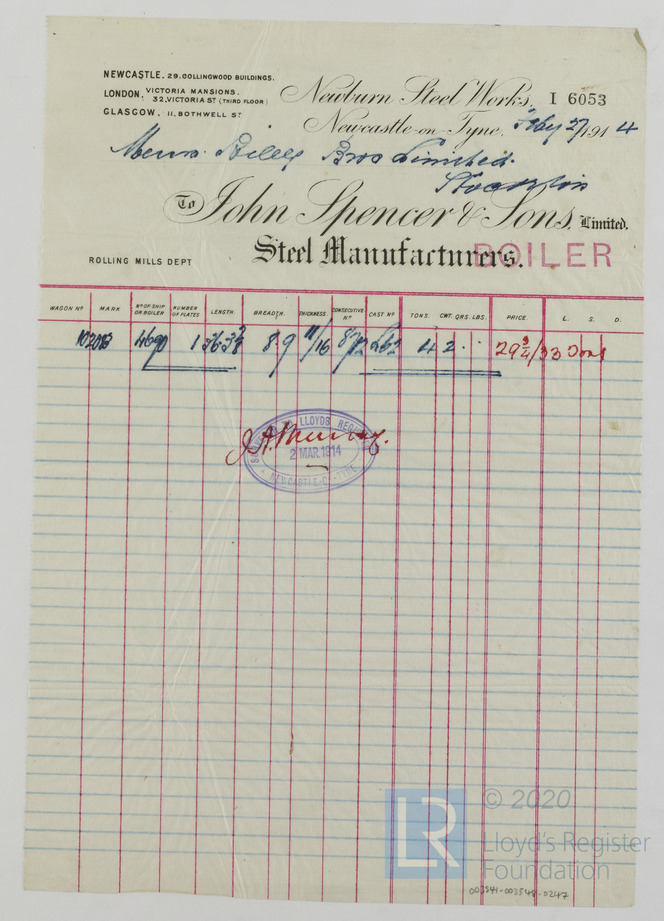 NEWCASTLE. 29. COLLINGWOOD BUILDINGS.
LONDON. VICTORIA MANSIONS.
32, VICTORIA ST (THIRD FLOOR)
GLASGOW. 11, BOTHWELL ST
Newburn Steel Works, I 6053
Newcastle-on-Tyne, Feby 27 1914
Messrs. Bros Limited.
Stockton
To John Spencer & Sons, Limited.
Steel Manufacturers.
BOILER
ROLLING MILLS DEPT
WAGON No MARK No OF SHIP OR BOILER NUMBER OF PLATES LENGTH. BREADTH. THICKNESS. CONSECUTIVE No CAST No TONS. CWT. QRS. LBS. PRICE. L. S. D.
4690 1 8 9 11/16 4 2 29 3/4/33 Tons
LLOYDS REGISTER
J. A. Murray.
2 MAR. 1914
NEWCASTLE-ON-TYNE
LR © 2020
Lloyd's Register
Foundation
003541-003548-0247